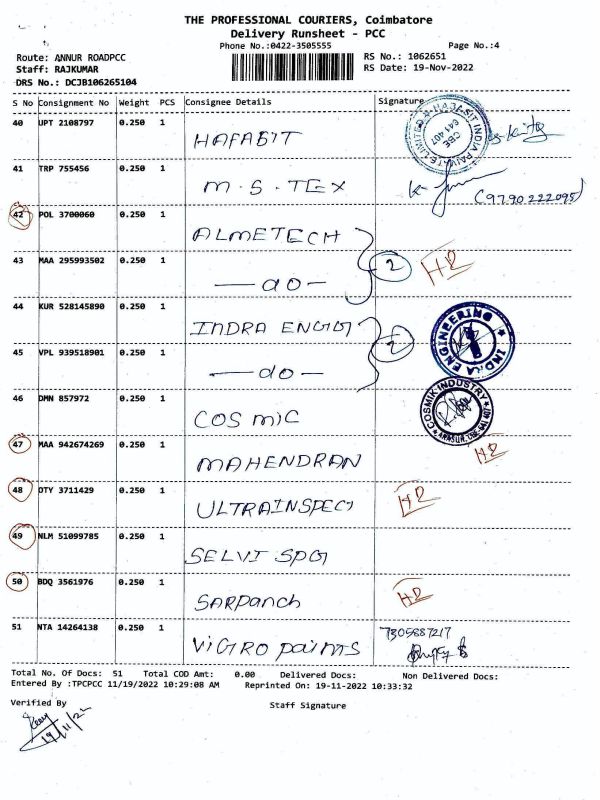 THE PROFESSIONAL COURIERS, Coimbatore
Delivery Runsheet - PCC
Phone No.:0422-3505555 Page No.:4
Route: ANNUR ROADPCC RS No.: 1062651
Staff: RAJKUMAR RS Date: 19-Nov-2022
DRS No.: DCJB106265104
S No Consignment No Weight PCS Consignee Details Signature
40 UPT 2108797 0.250 1 HAFABIT
41 TRP 755456 0.250 1 M.S.TEX
(9790222095)
42 POL 3700060 0.250 1 ALMETECH
43 MAA 295993502 0.250 1 — do — 2
44 KUR 528145890 0.250 1 INDRA ENGG 2
INDRA ENGINEERING
45 VPL 939518901 0.250 1 — do —
46 DMN 857972 0.250 1 COSMIC
COSMIK INDUSTRY
47 MAA 942674269 0.250 1 MAHENDRAN
48 DTY 3711429 0.250 1 ULTRAINSPECT
49 NLM 51099785 0.250 1 SELVI SPG
50 BDQ 3561976 0.250 1 SARPANCH
51 NTA 14264138 0.250 1 VIGRO PAINTS 7305887217
Total No. Of Docs: 51 Total COD Amt: 0.00 Delivered Docs: Non Delivered Docs:
Entered By :TPCPCC 11/19/2022 10:29:08 AM Reprinted On: 19-11-2022 10:33:32
Verified By Staff Signature
19/11/22